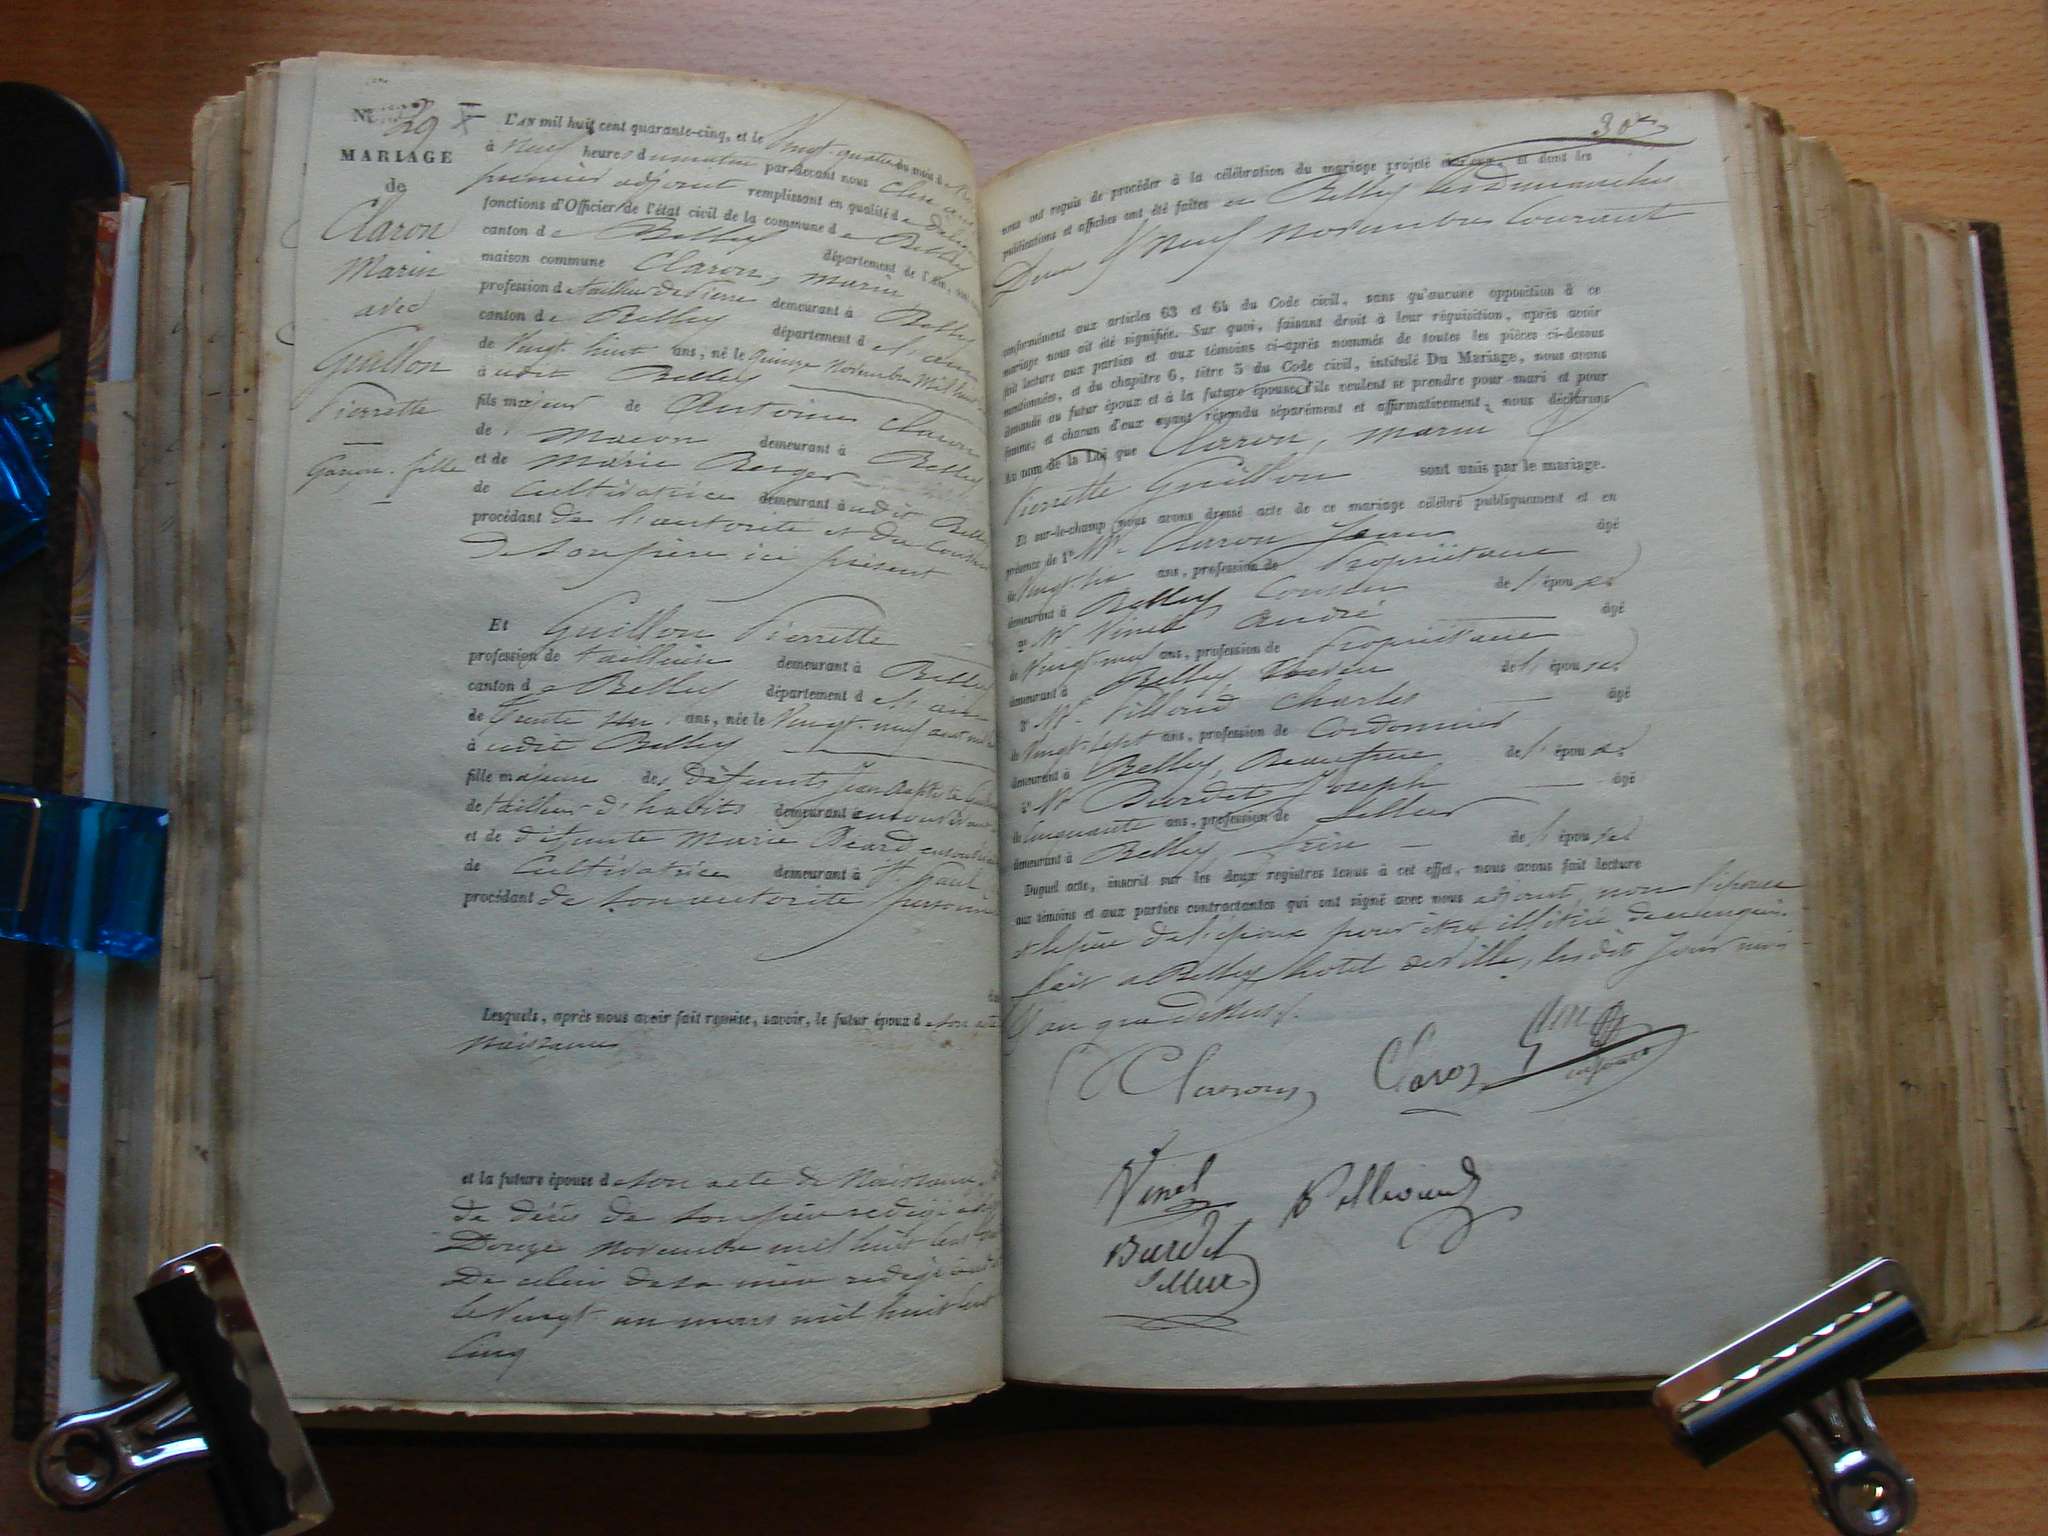 N 29
MARIAGE
de
Claron
Marin
avec
Guillon
Pierrette
Garçon. fille
L'AN mil huit cent quarante-cinq, et le Vingt-quatre du mois d
à neuf heures du matin par-devant nous
premier adjoint remplissant en qualité d
fonctions d'Officier de l'état civil de la commune de Belley
canton de Belley département de l'Ain,
maison commune Claron, Marin,
profession de tailleur de Pierre demeurant à Belley
canton de Belley département de l'ain
de Vingt-huit ans, né le quinze Novembre mil huit
à udit Belley
fils majeur de Antoine Claron
de Macon demeurant à Belley
et de Marie Berger
de Cultivatrice demeurant à udit Belley
procédant de l'autorité et du
de son père ici présent
Et Guillon Pierrette
profession de tailleuse demeurant à Belley
canton de Belley département de l'ain
de Trente un ans, née le Vingt-neuf aout mil
à udit Belley
fille majeure de défunts Jean Baptiste
de tailleur d'habits demeurant
et de défunte Marie Béard
de Cultivatrice demeurant à St Paul
procédant de son autorité personnel
Lesquels, après nous avoir fait remise, savoir, le futur époux de son acte
Naissance
et la future épouse de son acte de Naissance,
de décès de son père redigé
Douze novembre mil huit cent
De celui de sa mère redigé
le Vingt un mars mil huit cent
Cinq
30
nous ont requis de procéder à la célébration du mariage projeté entre eux, et dont les
publications et affiches ont été faites à Belley les Dimanches
Deux & Neuf novembre Courant
conformément aux articles 63 et 64 du Code civil, sans qu'aucune opposition à ce
mariage nous ait été signifiée. Sur quoi, faisant droit à leur réquisition, après avoir
fait lecture aux parties et aux témoins ci-après nommés de toutes les pièces ci-dessus
mentionnées, et du chapitre 6, titre 5 du Code civil, intitulé Du Mariage, nous avons
demandé au futur époux et à la future épouse s'ils veulent se prendre pour mari et pour
femme; et chacun d'eux ayant répondu séparément et affirmativement, nous déclarons
au nom de la Loi que Claron, Marin &
Pierrette Guillon sont unis par le mariage.
Et sur-le-champ nous avons dressé acte de ce mariage célébré publiquement et en
présence de 1° Mr. Claron Jean âgé
de Vingt-six ans, profession de Propriétaire
demeurant à Belley Cousin de l'époux
2° Mr Vinel André âgé
de Vingt-neuf ans, profession de Propriétaire
demeurant à Belley de l'époux
3° Mr. Charles âgé
de Vingt-sept ans, profession de Cordonnier
demeurant à Belley, Beaufrère de l'époux
4° Mr Burdet Joseph âgé
de Cinquante ans, profession de Sellier
demeurant à Belley de l'épou
Duquel acte, inscrit sur les deux registres tenus à cet effet, nous avons fait lecture
aux témoins et aux parties contractantes qui ont signé avec nous adjoint, non l'épouse
et le père de l'époux pour être illitéré de ce enquis.
fait à Belley hotel de Ville, lesdits Jour mois
& an que dessus.
Claron
Claron
Vinel
Burdet
Sellier